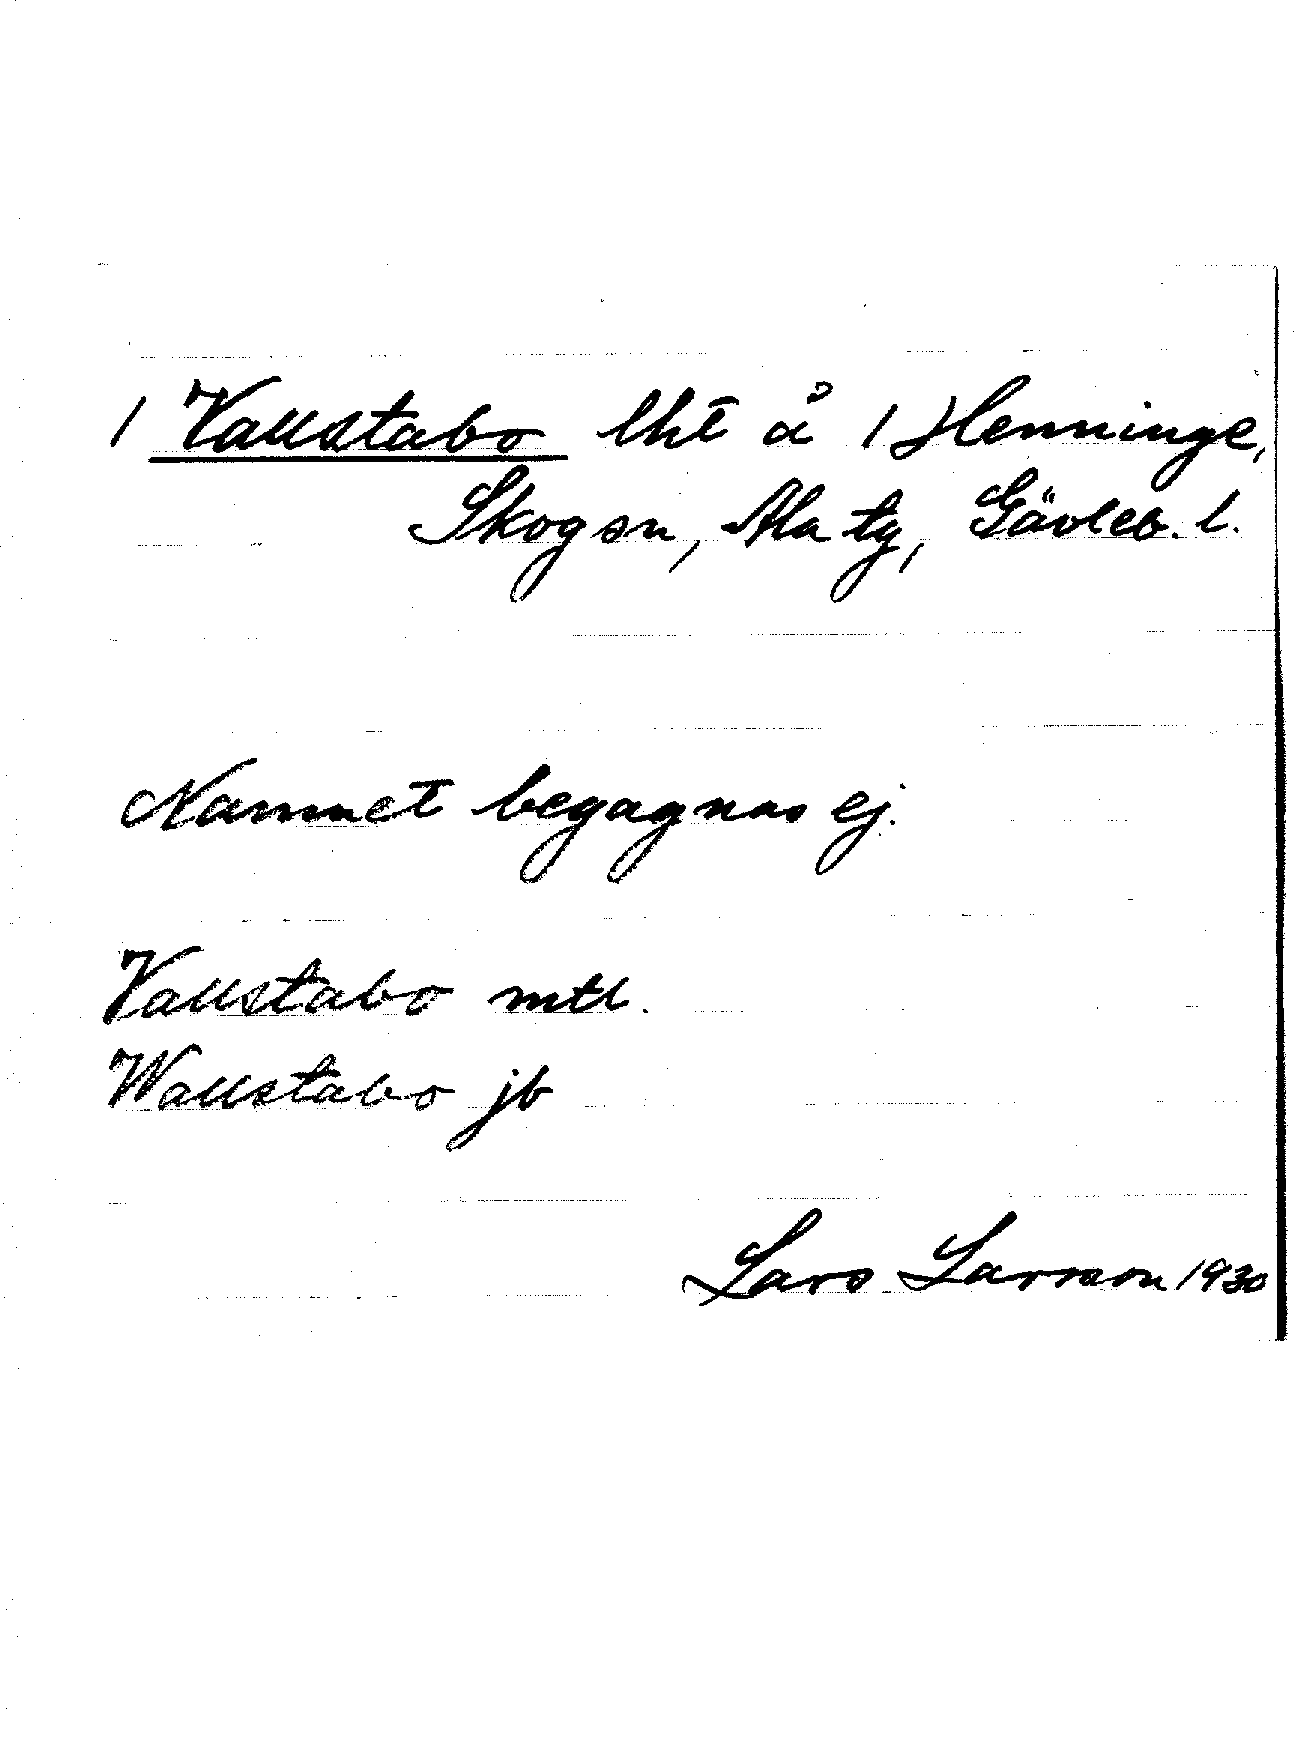 1 Vallstabo lht å 1 Henninge,
Skog sn, Ala tg, Gävleb. l.
Namnet begagnas ej.
Vallstabo mtl.
Wallstabo jb
Lars Larsson 1930